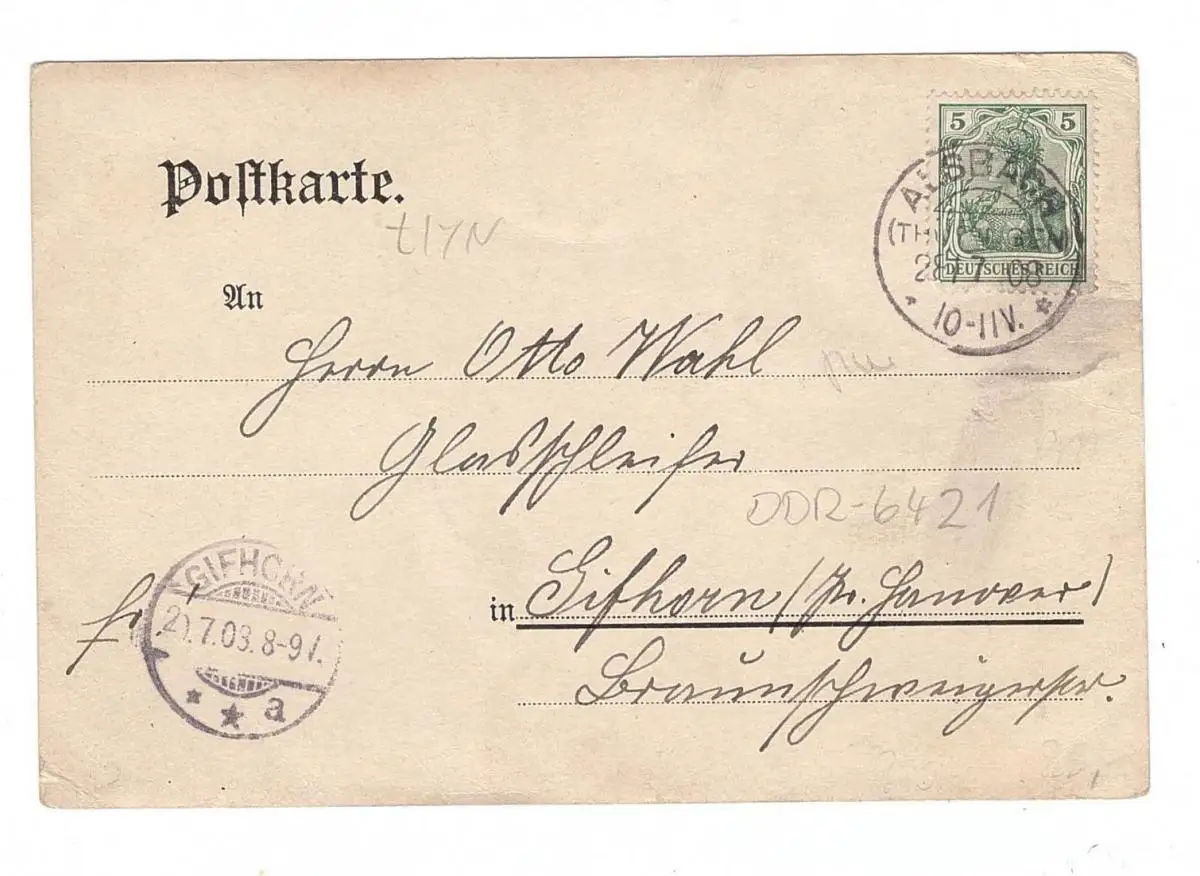 Postkarte.
tlYN
5 5
DEUTSCHES REICH
ALSBACH
(THÜRINGEN)
28/7 03
10-11V.
An
Herrn Otto Wahl
Glasschleifer
DDR-6421
in Gifhorn (Pr. Hanover)
Braunschweigerstr.
fr.
GIFHORN
7.03. 8-9V.
a